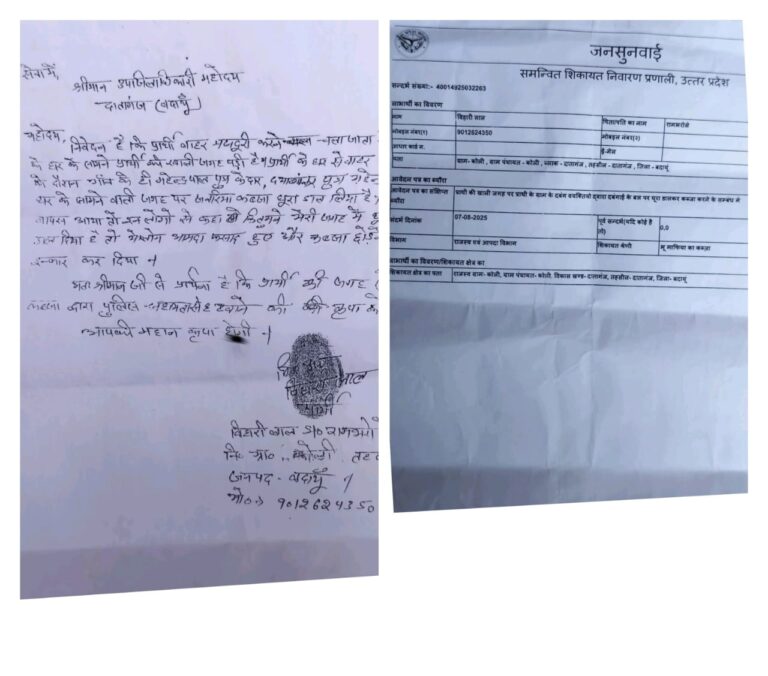 सेवा में,
श्रीमान उपजिलाधिकारी महोदय
दातागंज (बदायूँ)
महोदय,
निवेदन है कि प्रार्थी बाहर मजदूरी करने चला जाता
के घर के सामने प्रार्थी की खाली जगह पड़ी है प्रार्थी के घर से बाहर
के दौरान गाँव के ही महेन्द्रपाल पुत्र केदार, पुत्र
घर के सामने वाली जगह पर कब्जा घूरा डाल लिया है
वापस आया तो इन लोगों से कहा कि तुमने मेरी जगह में
डाल दिया है तो ये लोग आमदा फसाद हुए और कब्जा
इन्कार कर दिया ।
अतः श्रीमान जी से प्रार्थना है कि प्रार्थी की जगह
कब्जा द्वारा पुलिस हटवाने की की कृपा
आपकी महान कृपा होगी ।
प्रार्थी
बिहारी लाल S/o
नि० ग्रा०
जनपद - बदायूँ ।
मो० 9012624350
जनसुनवाई
समन्वित शिकायत निवारण प्रणाली, उत्तर प्रदेश
सन्दर्भ संख्या:- 40014925032263
लाभार्थी का विवरण
नाम बिहारी लाल पिता/पति का नाम रामभरोसे
मोबाइल नंबर(१) 9012624350 मोबाइल नंबर(२)
आधार कार्ड न. ई-मेल
पता ग्राम- कोली , ग्राम पंचायत - कोली , ब्लाक - दातागंज , तहसील - दातागंज , जिला - बदायूं
आवेदन पत्र का ब्यौरा
आवेदन पत्र का संक्षिप्त ब्यौरा प्रार्थी की खाली जगह पर प्रार्थी के ग्राम के दबंग व्यक्तियो द्वारा दबंगाई के बल पर घूरा डालकर कब्जा करने के सम्बन्ध मे
संदर्भ दिनांक 07-08-2025 पूर्व सन्दर्भ(यदि कोई है तो) 0,0
विभाग राजस्व एवं आपदा विभाग शिकायत श्रेणी भू माफिया का कब्जा
लाभार्थी का विवरण/शिकायत क्षेत्र का
शिकायत क्षेत्र का पता राजस्व ग्राम- कोली, ग्राम पंचायत- कोली, विकास खण्ड- दातागंज, तहसील- दातागंज, जिला- बदायूं